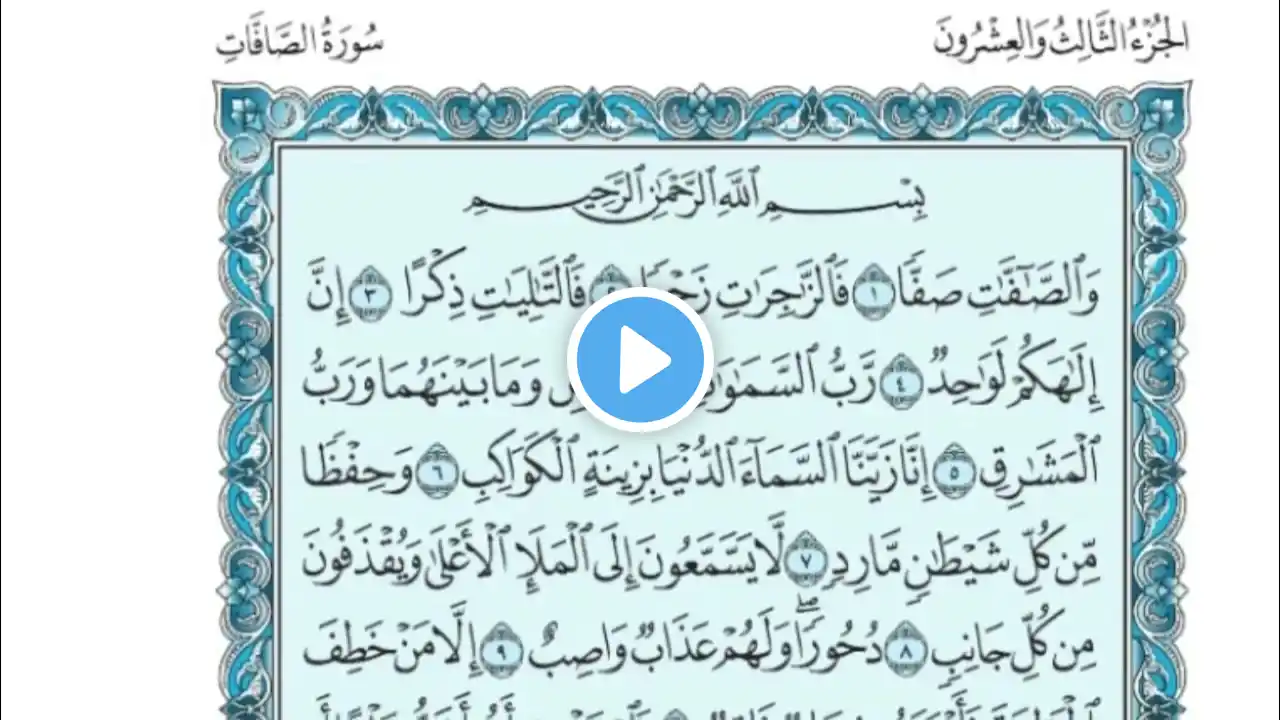 الجُزْءُ الثَّالِثُ وَالعِشْرُونَ
سُورَةُ الصَّافَّاتِ
بِسْمِ ٱللَّهِ ٱلرَّحْمَٰنِ ٱلرَّحِيمِ
وَٱلصَّٰٓفَّٰتِ صَفّٗا ١ فَٱلزَّٰجِرَٰتِ فَٱلتَّٰلِيَٰتِ ذِكۡرًا ٣ إِنَّ
إِلَٰهَكُمۡ لَوَٰحِدٞ ٤ رَّبُّ وَمَا بَيۡنَهُمَا وَرَبُّ
ٱلۡمَشَٰرِقِ ٥ إِنَّا زَيَّنَّا ٱلسَّمَآءَ ٱلدُّنۡيَا بِزِينَةٍ ٱلۡكَوَاكِبِ ٦ وَحِفۡظٗا
مِّن كُلِّ شَيۡطَٰنٖ مَّارِدٖ ٧ لَّا يَسَّمَّعُونَ إِلَى ٱلۡمَلَإِ ٱلۡأَعۡلَىٰ وَيُقۡذَفُونَ
مِن كُلِّ جَانِبٖ ٨ دُحُورٗاۖ وَلَهُمۡ عَذَابٞ وَاصِبٌ ٩ إِلَّا مَنۡ خَطِفَ